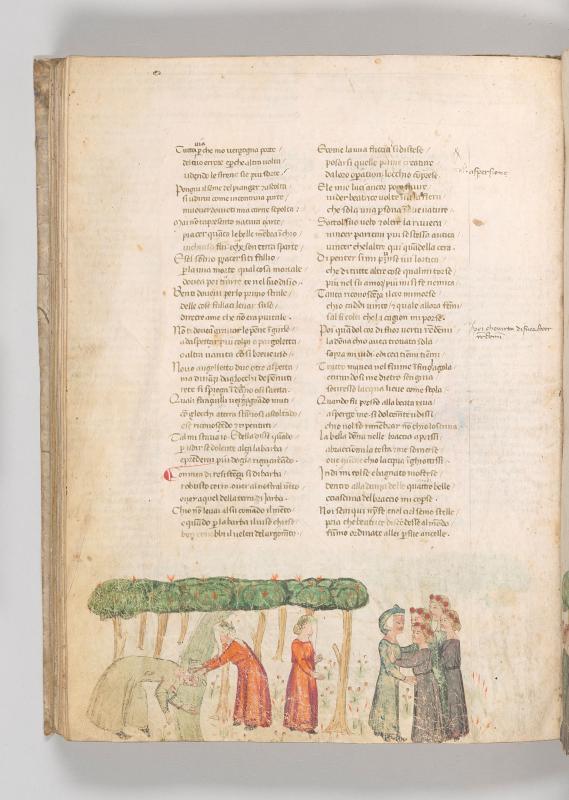 via
Tutta p che mo vergogna porte
del tuo errore & pche altra volta
udendo le sirene sie piu forte
Pongiu il seme del pianger & ascolta
si udirai come incontraria parte
mover doveati mia carne sepolta
Mai nō tapresento natura o arte
piacer quāto le belle mēbra inchio
rinchiusa fui & che son terra sparte
E sel sōmo piacer si ti fallio
p la mia morte qual cosa mortale
dovea poi trarre te nel suo disio
Ben ti dovevi per lo primo strale
delle cose fallaci levar suso
diretro a me che nō era piu tale
Nō ti dovea gravar le pēne ī giuso
ad aspettar piu colpi o pargoletta
o altra vanita cō si breve uso
Novo augelletto due o tre aspetta
ma dināzi da gliocchi de pēnuti
rete si spiega ī dāno o si saetta
Quali fanciulli vergognādo muti
cō gliocchi a terra stānosi ascoltādo
e se riconoscēdo & ripentuti
Tal mi stava io & ella disse quādo
p udir se dolente alza la barba
& prēderai piu doglia riguardādo
Con men di resistēza si dibarba
robusto cerro over al nostral vēto
over a quel della terra di Jarba
Chio nō levai al suo comādo il mēto
e quādo p la barba il viso chiese
ben conobbi il velen del argomēto
E come la mia faccia si distese
posarsi quelle prime creature
da loro opation locchio cōprese
E le mie luci ancor poco sicure
vider beatrice volta in su la fiera
che sola una psona ī due nature
Sotto l suo velo & oltre la riviera
vincer pareami piu se stessa antica
vincer che laltre qui quādella cera
Di penter si mi pūse ivi lortica
che di tutte altre cose qual mi torse
piu nel su amor piu mi si fe nemica
Tanta riconoscēza il cor mi morse
chio caddi vinto & quale allora fēmi
sal si colei che la cagion mi porse
Poi quādol cor di fuor vertu rēdemi
la dōna chio avea trovata sola
sopra me vidi & dicea tiemi tiemi
Tratto mavea nel fiume īfin a gola
e tirandosi me dietro sen giva
sovresso lacqua lieve come stola
Quando fu presso alla beata riva
asperge me si dolcemēte udissi
chio nol so rimēbrar nō chio lo scriva
La bella dōna nelle braccia aprissi
abracciomi la testa & me somerse
ove cōvēne chio lacqua īghiottissi
Indi mi tolse & bagnato mofferse
dentro alla danza delle quattro belle
e ciascuna del braccio mi coperse
Noi sian qui nynfe & nel ciel semo stelle
pria che beatrice discēdesse al mōdo
fūmo ordinate a llei p sue ancelle
aspersione